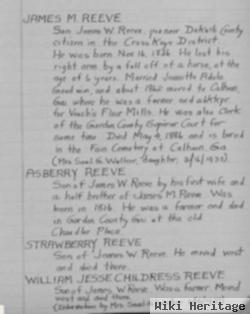 JAMES M. REEVE
Son James W. Reeve, pioneer DeKalb County
citizen in the Cross Keys District.
He was born Nov. 16, 1836. He lost his
right arm by a fall off of a horse, at the
age of 6 years. Married Jeanette Adela
Goodwin, and about 1862 moved to Calhoun,
Ga. where he was a farmer and bkkpr.
for Veach's Flour Mills. He was also Clerk
of the Gordon County, Superior Court for
some time. Died May 4, 1886 and is buried
in the Fain Cemetery at Calhoun, Ga.
(Mrs Saml G. Walker, daughter,
ASBERRY REEVE
Son of James W. Reeve by his first wife and
a half brother of James M. Reeve. Was
born in 1816. He was a farmer and died
in Gordon County Ga. at the old
Chandler Place
STRAWBERRY REEVE
Son of James W. Reeve. He moved west
and died there.
WILLIAM JESSE CHILDRESS REEVE
Son of James W. Reeve. Was a farmer. Moved
west and died there.
(Information by Mrs. Saml
Wiki Heritage